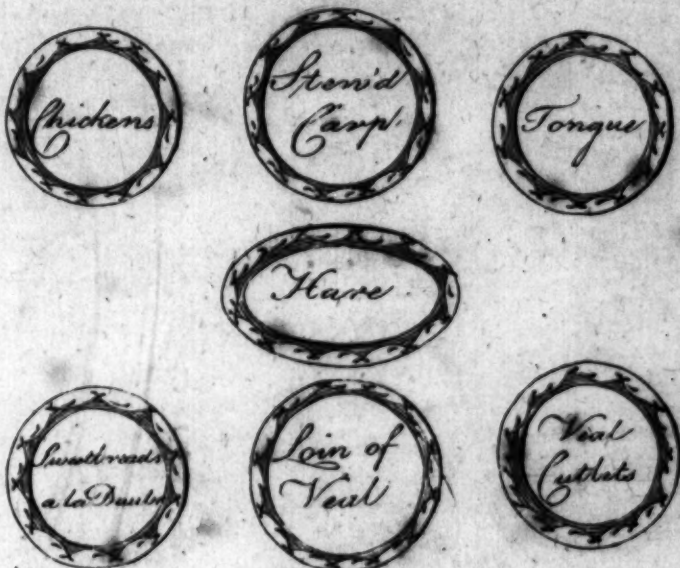 Chickens
Stew'd
Carp.
Tongue
Hare
Sweetbreads
a la Daube
Loin of
Veal
Veal
Cutlets